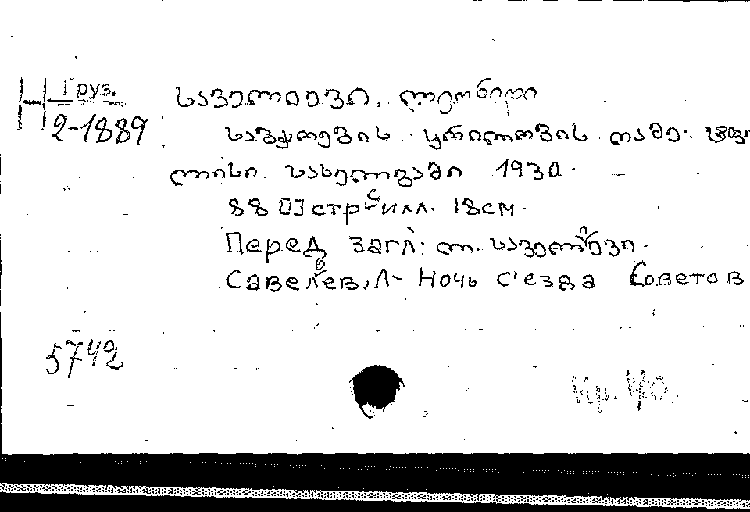 Н Груз.
2-1889
საველიევი, ლეონიდი
საბჭოების ყრილობის ღამე.
ლისი. სახელგამი 1930.
88 [] стр с илл. 18см.
Перед загл: ლ. საველიევი.
Савелев, Л- Ночь с'езда Советов
5742